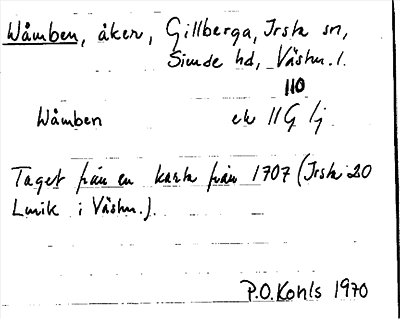 Wåmben, åker, Gillberga, Irsta sn,
Siende hd, Västm. l.
110
Wåmben ek 11G 1j
Taget från en karta från 1707 (Irsta 20
Lmik i Västm.).
P.O. Kohls 1970